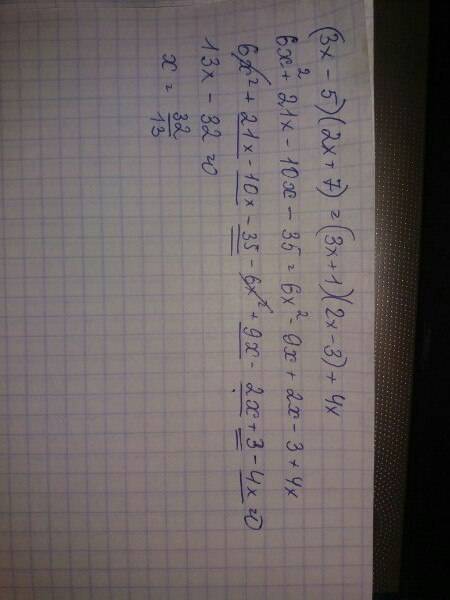 (3x - 5)(2x + 7) = (3x + 1)(2x - 3) + 4x
6x² + 21x - 10x - 35 = 6x² - 9x + 2x - 3 + 4x
6x² + 21x - 10x - 35 - 6x² + 9x - 2x + 3 - 4x = 0
13x - 32 = 0
x = 32/13